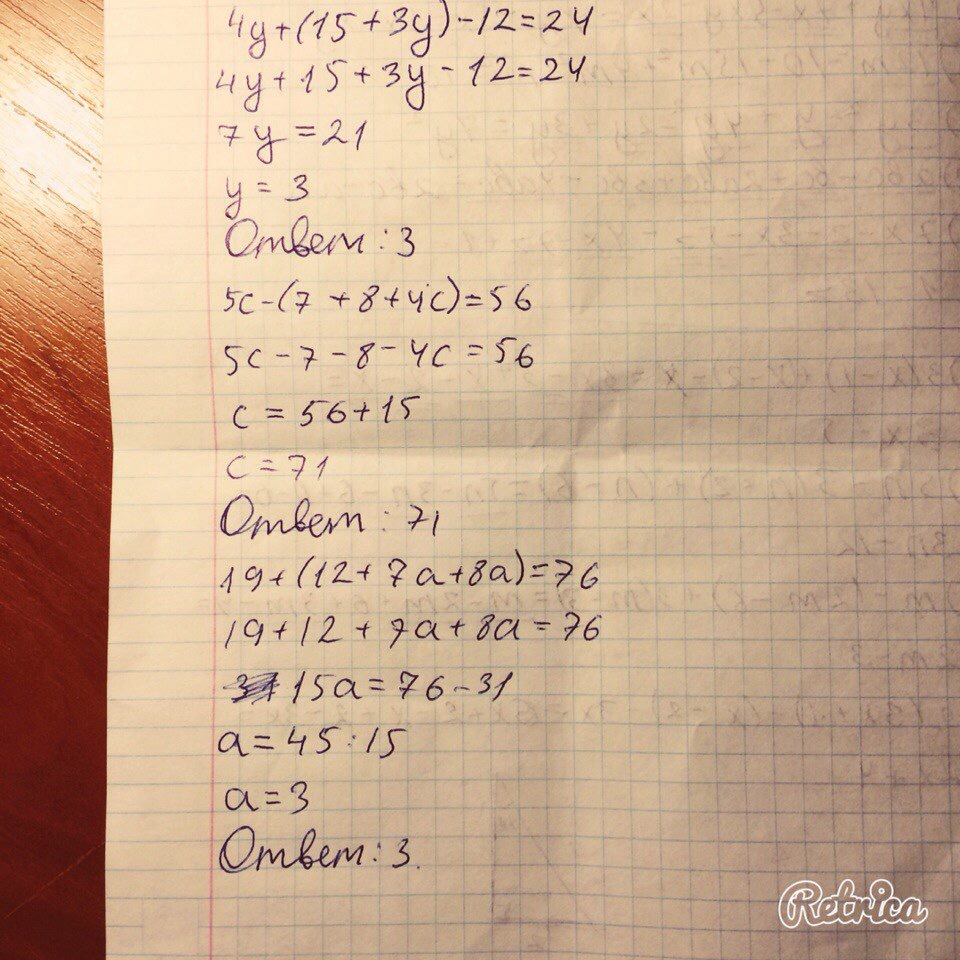 4y+(15+3y)-12=24
4y+15+3y-12=24
7y=21
y=3
Ответ: 3
5c-(7+8+4c)=56
5c-7-8-4c=56
c=56+15
c=71
Ответ: 71
19+(12+7a+8a)=76
19+12+7a+8a=76
15a=76-31
a=45:15
a=3
Ответ: 3.
Retrica